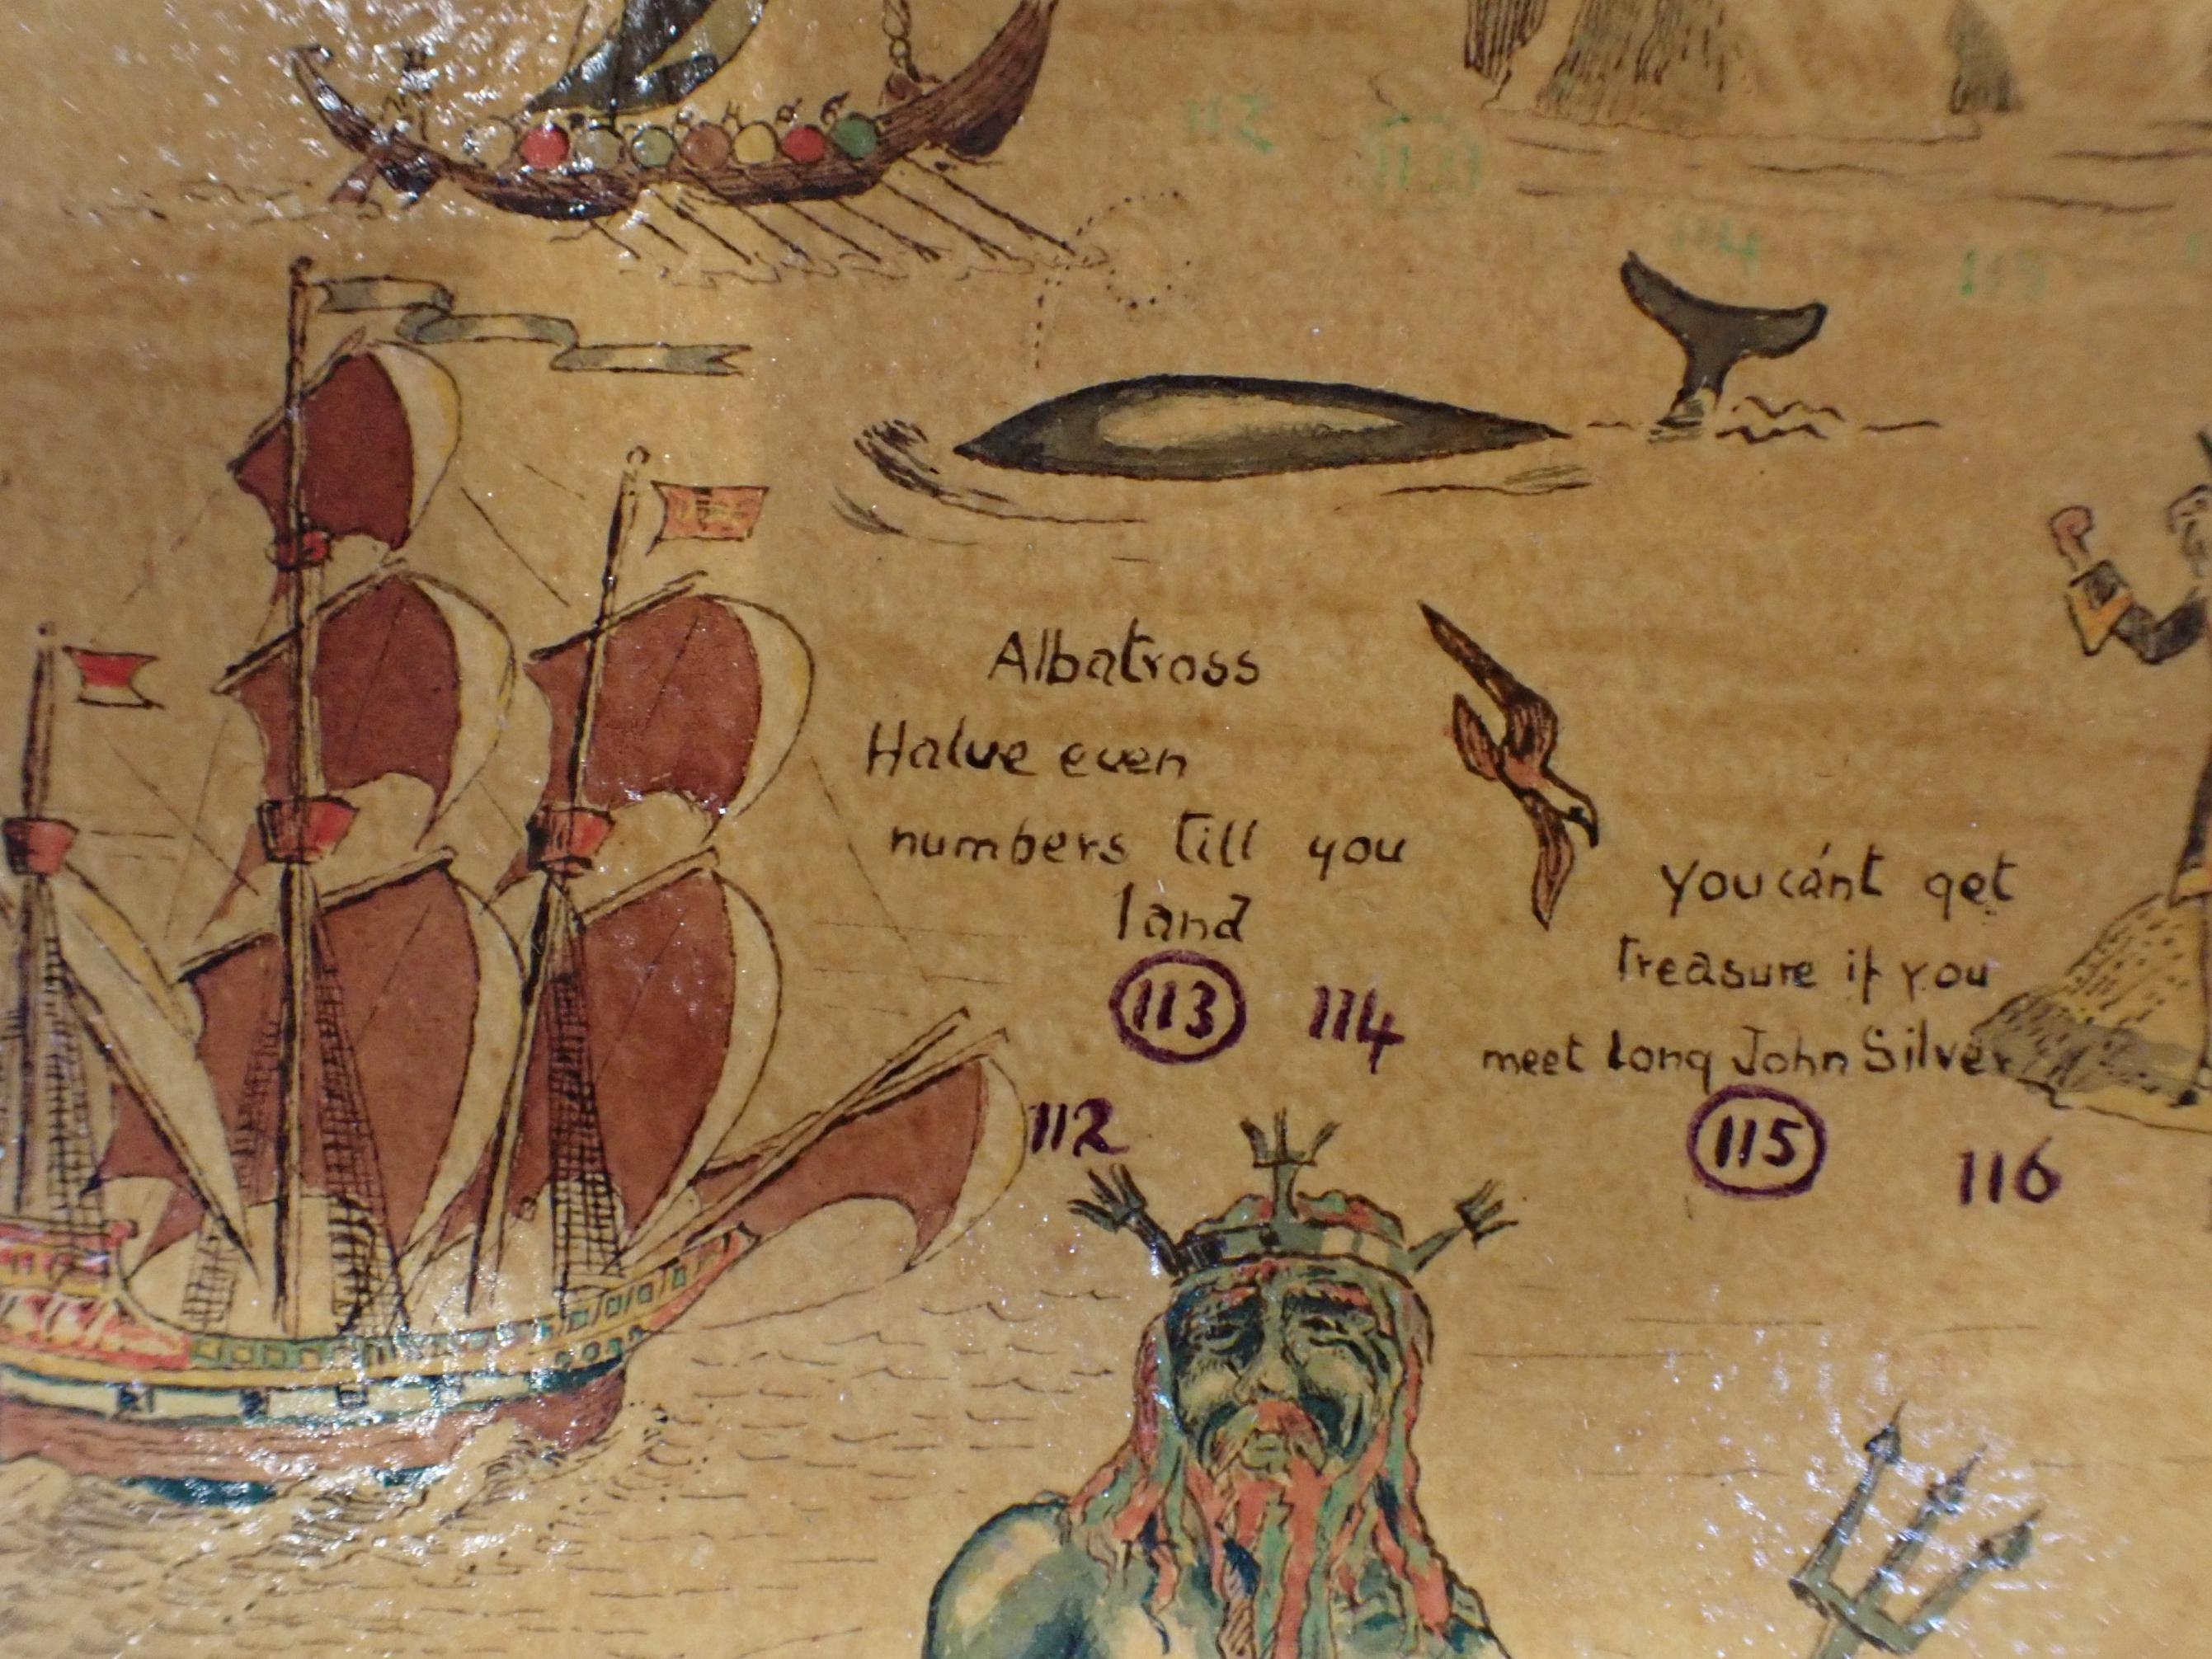 Albatross
Halve even
numbers till you
land
113 114
112
You can't get
treasure if you
meet Long John Silver
115 116